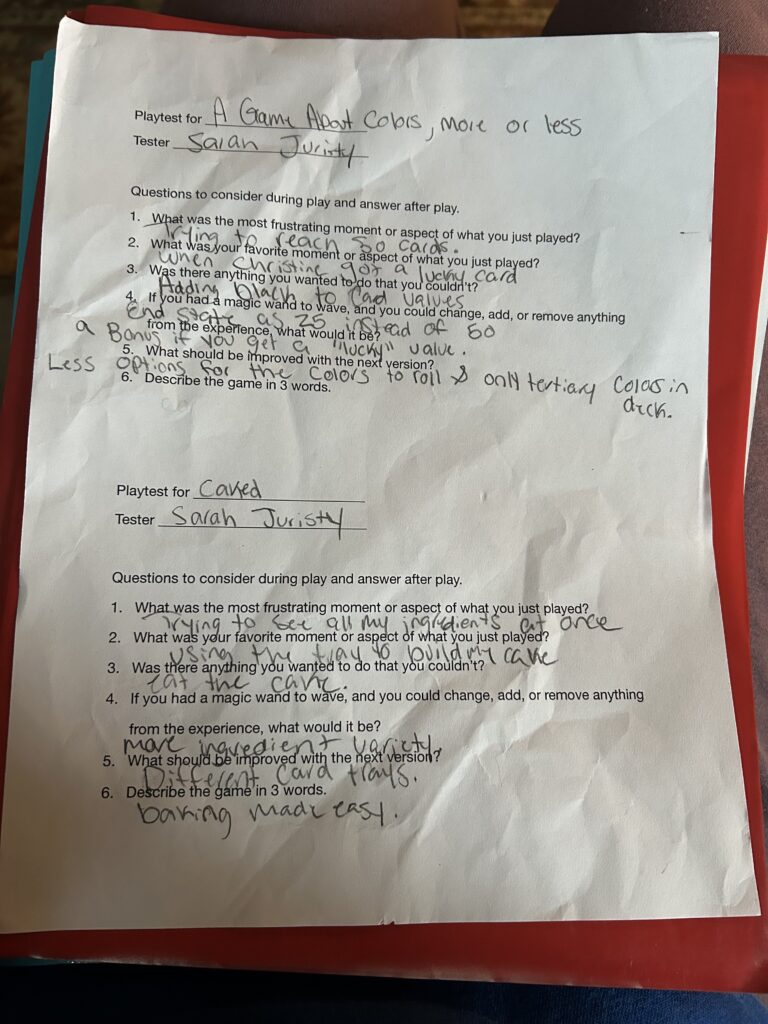 Playtest for A Game About Colors, more or less
Tester Sarah Juristy
Questions to consider during play and answer after play.
1. What was the most frustrating moment or aspect of what you just played?
Trying to reach 50 cards.
2. What was your favorite moment or aspect of what you just played?
When Christine got a lucky card
3. Was there anything you wanted to do that you couldn't?
Adding black to card values
4. If you had a magic wand to wave, and you could change, add, or remove anything
End state as 25 instead of 50
from the experience, what would it be?
a Bonus if you get a "lucky" value.
5. What should be improved with the next version?
Less options for the colors to roll & only tertiary colors in
deck.
6. Describe the game in 3 words.
Playtest for Caked
Tester Sarah Juristy
Questions to consider during play and answer after play.
1. What was the most frustrating moment or aspect of what you just played?
Trying to see all my ingredients at once
2. What was your favorite moment or aspect of what you just played?
Using the tray to build my cake
3. Was there anything you wanted to do that you couldn't?
Eat the cake.
4. If you had a magic wand to wave, and you could change, add, or remove anything
from the experience, what would it be?
more ingredient variety.
5. What should be improved with the next version?
Different card trays.
6. Describe the game in 3 words.
baking made easy.